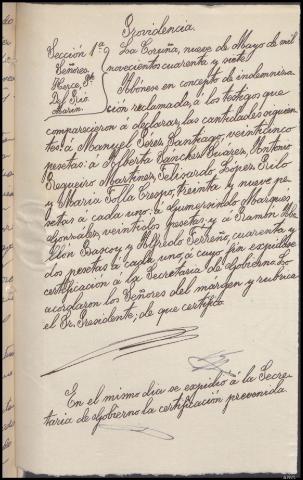 Providencia.
Sección 1ª La Coruña, nueve de Mayo de mil
Señores. novecientos cuarenta y siete
Herce, Pte Abónese en concepto de indemniza-
Del Río ción reclamada, á los testigos que
Marin
comparecieron á declarar, las cantidades siguien-
tes: á Manuel Peres Santiago, veinticinco
pesetas: á Alberta Sanches Suares, Antonio
Regueiro Martines, Felisardo López Rilo
y María Tolla Crespo, treinta y nueve pe-
setas á cada uno: á Gumersindo Marqués
Gonzales, veintidos pesetas: y á Ramón
Pascoy y Alfredo Ferreño, cuarenta y
dos pesetas á cada uno, á cuyo fin expídase
certificación á la Secretaría de Gobierno. Lo
acordaron los Señores del margen y rubrica
el Sr. Presidente; de que certifico.
En el mismo dia se expidió á la Secre-
taría de Gobierno la certificación prevenida.